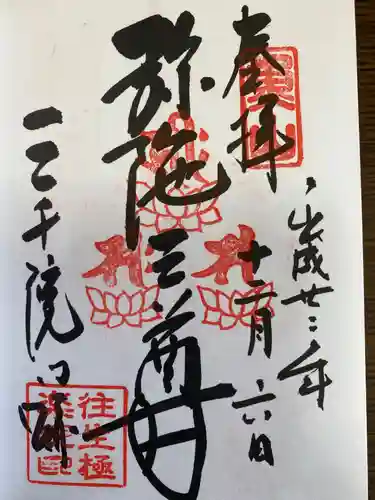 奉拝
平成廿二年
十二月六日
弥陀三尊
三千院門跡
往生極
楽院印